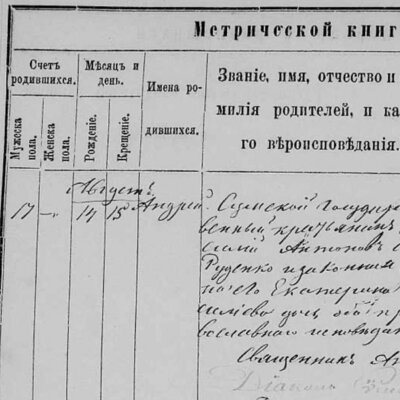 Метрической книг
Счетъ родившихся.
Мѣсяцъ и день.
Имена ро-
дившихся.
Званіе, имя, отчество и
милія родителей, и ка
го вѣроисповѣданія.
Мужеска пола.
Женска пола.
Рожденіе.
Крещеніе.
Августъ
17 -"- 14 15 Андрей. Сумской Государ
венный крестьянинъ
силій Антоновъ
Руденко и законная
на его Екатерина
симова дочь оба пр
вославнаго исповѣдан
Священникъ Ан
Діаконъ